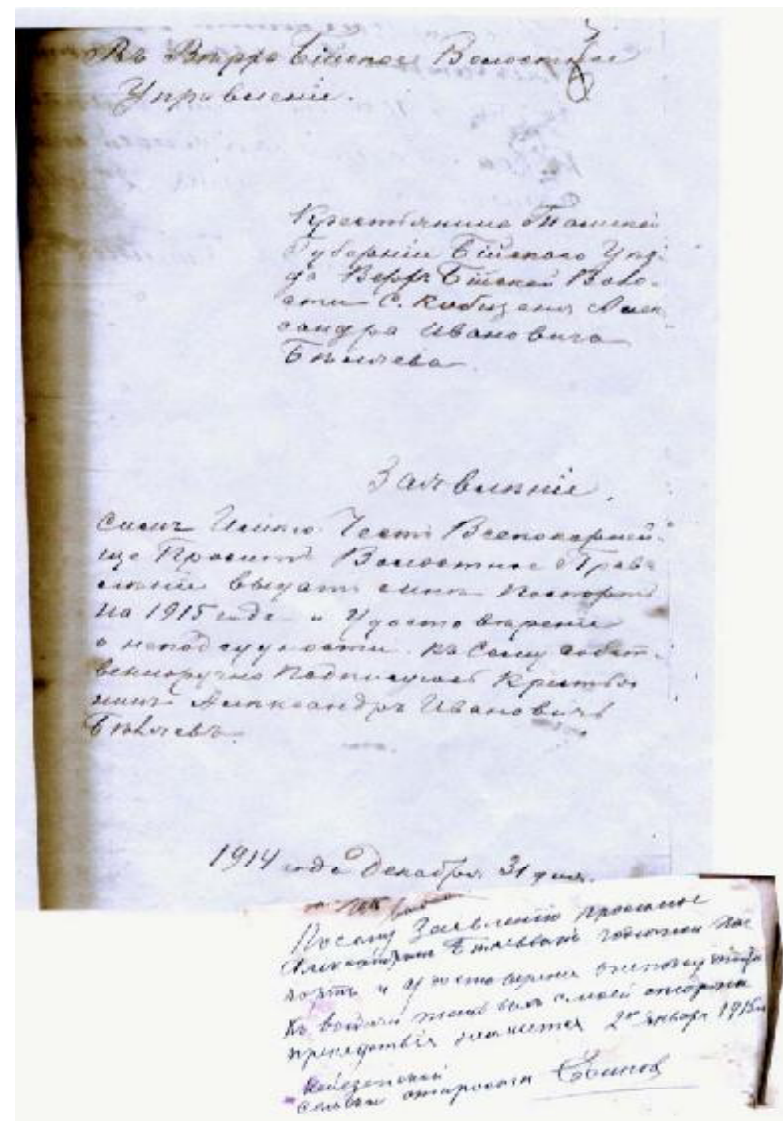 Въ Верхъ Бійское Волостное
Управленіе.
Крестьянина Томской
Губерніи Бійскаго Уѣз-
да Верхъ Бійской Воло-
сти С. Кебезеня Алек
сандра Ивановича
Бѣляева.
Заявленіе.
Симъ Имѣю Честь Всепокорнѣй-
ще Просить Волостное Прав-
леніе выдать мнѣ Паспортъ
на 1915 годъ и Удостовѣреніе
о неподсудности къ Сему собст-
венноручно Подписуюсь Крестья
нинъ Александръ Ивановичъ
Бѣляевъ.
1914 года Декабря 31 дня.
Посему Заявленію просимое
Александромъ Бѣляевымъ годовой пас
портъ и удостовереніе о
къ выдачи съ моей стороны
препятствія 2го января 1915
Кебезенский
сельский староста